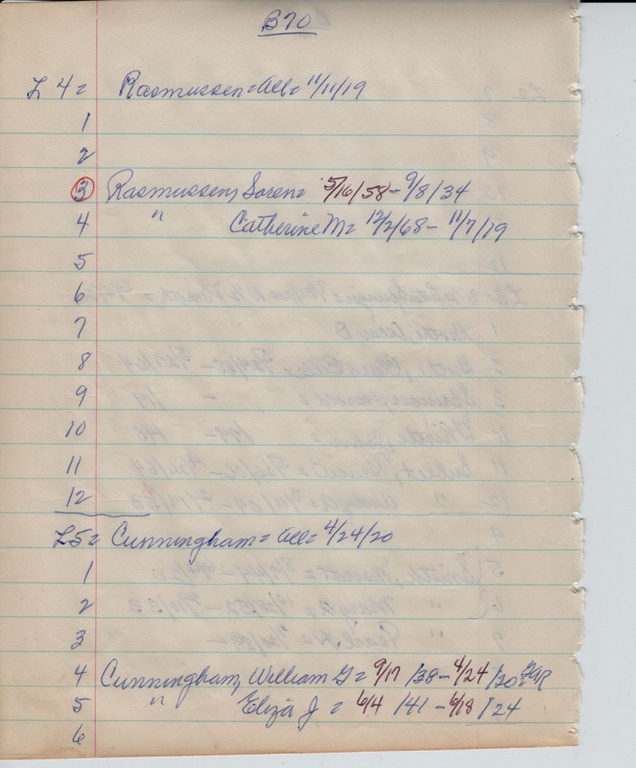 B70
L 4 = Rasmussen = All = 11/11/19
1
2
3 Rasmussen, Soren = 5/16/58 - 9/8/34
4 " Catherine M = 12/2/68 - 11/7/19
5
6
7
8
9
10
11
12
L5 = Cunningham = All = 4/24/20
1
2
3
4 Cunningham, William G = 9/17/38 - 4/24/20 GAR
5 " Eliza J = 6/4/41 - 6/18/24
6